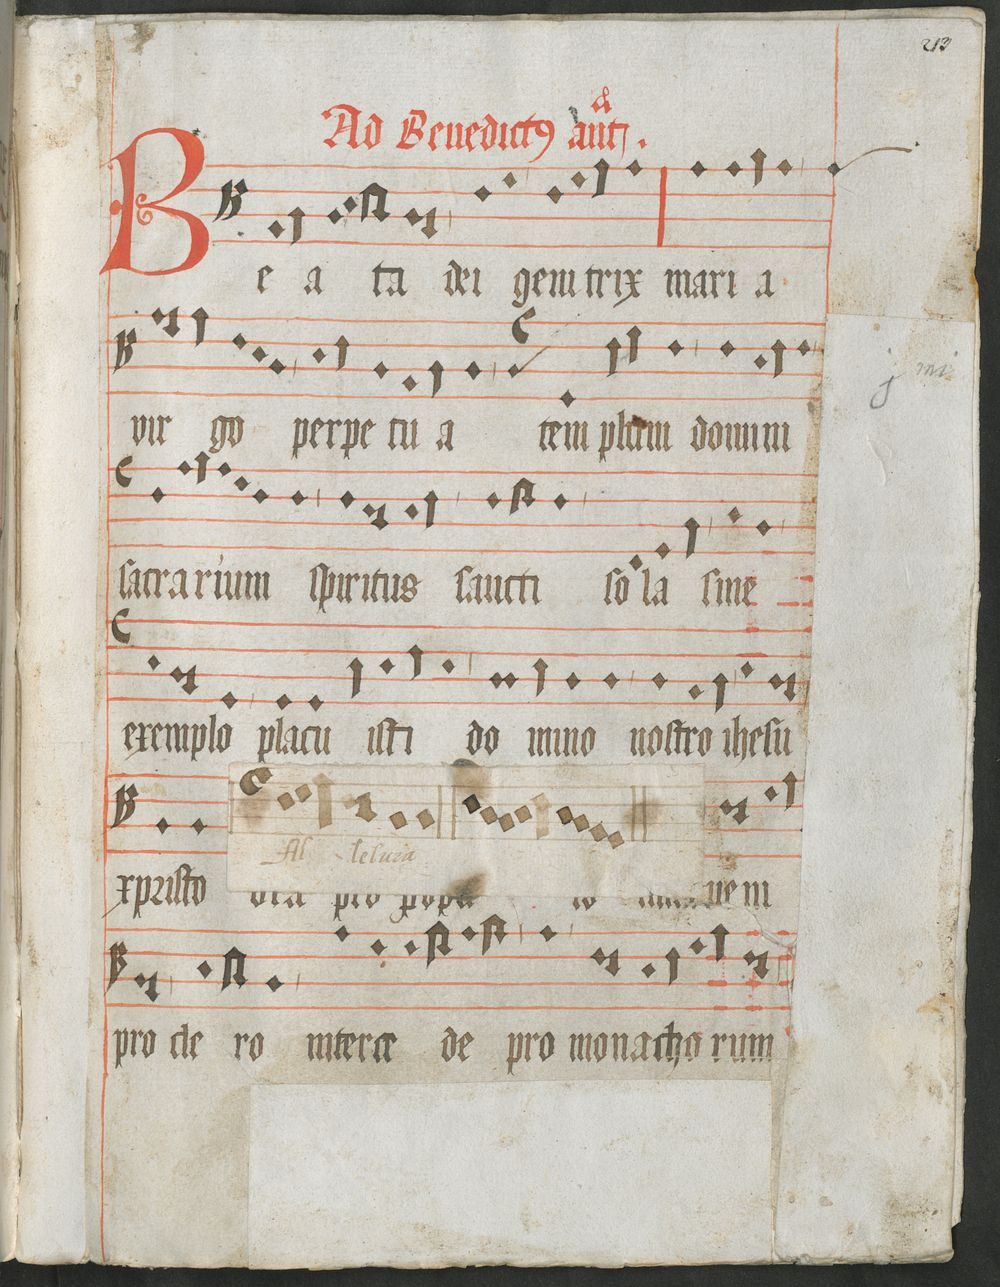 213
Ad Benedictꝰ
B e a ta dei genitrix mari a
vir go perpe tu a tem plum domini
sacra rium spiritus sancti so la sine
exemplo placu isti do mino nostro ihesu
Al leluia
xpristo ora pro popu lo inter ueni
pro cle ro interce de pro monacho rum